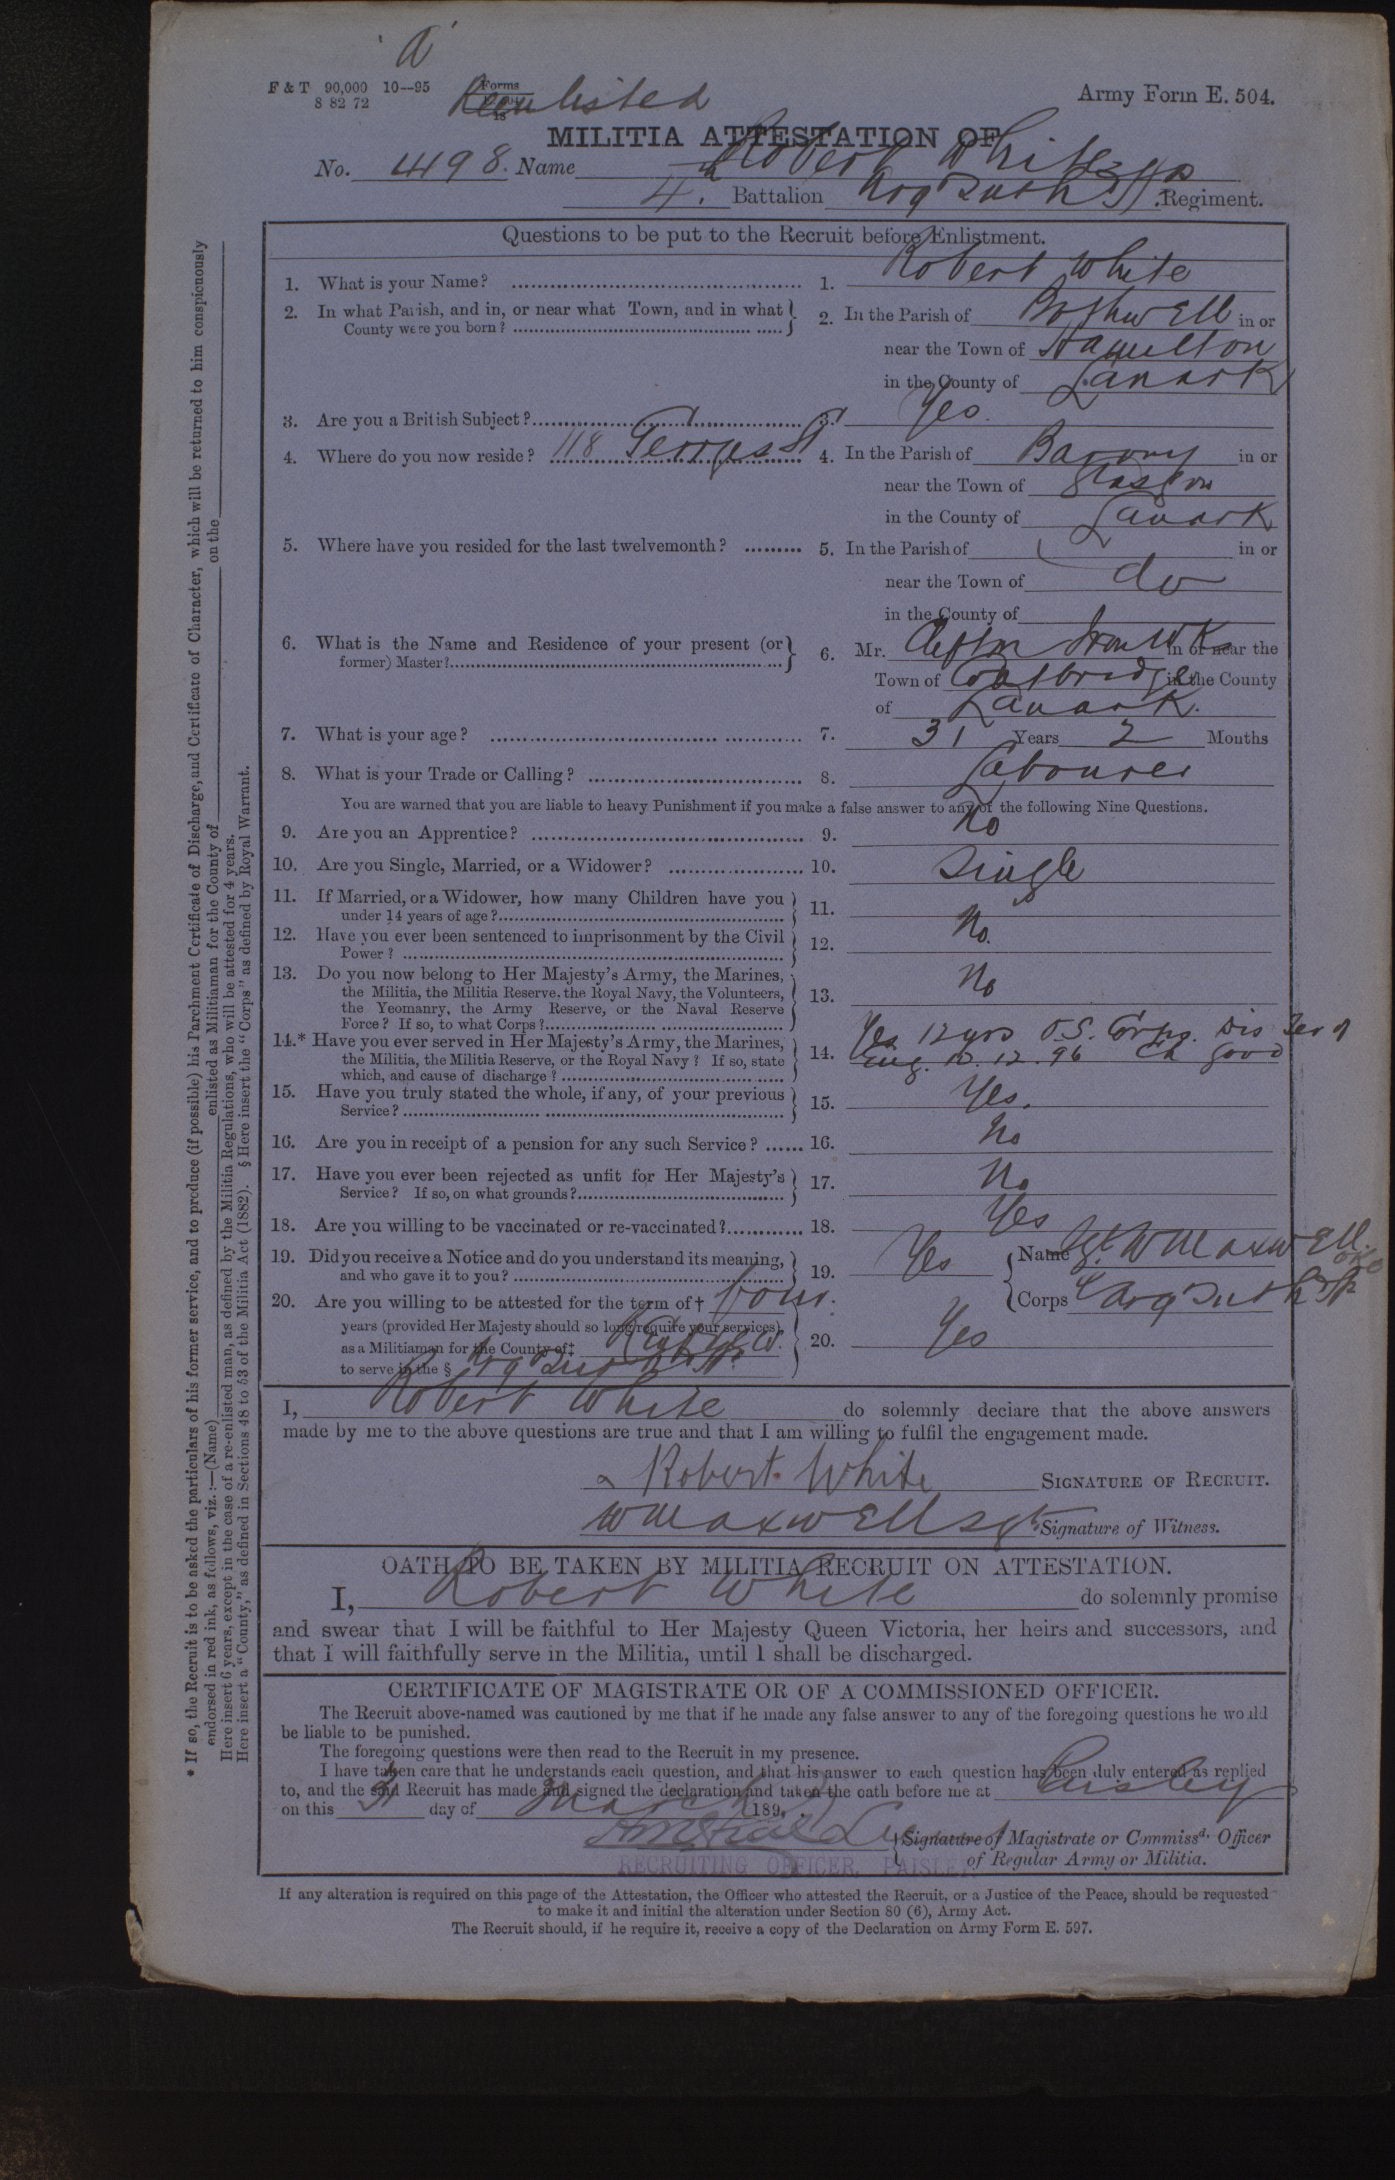 a
F & T 90,000 10--95
8 82 72
Forms
Reenlisted
Army Form E. 504.
MILITIA ATTESTATION OF
No. 4498. Name Robert White
4th Battalion Regiment.
Questions to be put to the Recruit before Enlistment.
1. What is your Name? 1. Robert White
2. In what Parish, and in, or near what Town, and in what County were you born? 2. In the Parish of Bothwell in or
near the Town of Hamilton
in the County of Lanark
3. Are you a British Subject? 3. Yes.
4. Where do you now reside? 118 Georges St 4. In the Parish of Barony in or
near the Town of Glasgow
in the County of Lanark
5. Where have you resided for the last twelvemonth? 5. In the Parish of in or
near the Town of do
in the County of
6. What is the Name and Residence of your present (or former) Master? 6. Mr. Clifton Iron Wks in or near the
Town of Coatbridge in the County
of Lanark.
7. What is your age? 7. 31 Years 2 Months
8. What is your Trade or Calling? 8. Labourer
You are warned that you are liable to heavy Punishment if you make a false answer to any of the following Nine Questions.
9. Are you an Apprentice? 9. No
10. Are you Single, Married, or a Widower? 10. Single
11. If Married, or a Widower, how many Children have you under 14 years of age? 11.
12. Have you ever been sentenced to imprisonment by the Civil Power? 12. No.
13. Do you now belong to Her Majesty's Army, the Marines, the Militia, the Militia Reserve, the Royal Navy, the Volunteers, the Yeomanry, the Army Reserve, or the Naval Reserve Force? If so, to what Corps? 13. No
14.* Have you ever served in Her Majesty's Army, the Marines, the Militia, the Militia Reserve, or the Royal Navy? If so, state which, and cause of discharge? 14. Yes 12 yrs O.S. Corps. Dis Ter of
Eng. 12. 12. 96 Ch good
15. Have you truly stated the whole, if any, of your previous Service? 15. Yes.
16. Are you in receipt of a pension for any such Service? 16. No
17. Have you ever been rejected as unfit for Her Majesty's Service? If so, on what grounds? 17. No
18. Are you willing to be vaccinated or re-vaccinated? 18. Yes
19. Did you receive a Notice and do you understand its meaning, and who gave it to you? 19. Yes Name Sgt W Maxwell
Corps
20. Are you willing to be attested for the term of † four
years (provided Her Majesty should so long require your services),
as a Militiaman for the County of ‡
to serve in the § 20. Yes
I, Robert White do solemnly declare that the above answers
made by me to the above questions are true and that I am willing to fulfil the engagement made.
Robert White SIGNATURE OF RECRUIT.
W Maxwell Sgt Signature of Witness.
OATH TO BE TAKEN BY MILITIA RECRUIT ON ATTESTATION.
I, Robert White do solemnly promise
and swear that I will be faithful to Her Majesty Queen Victoria, her heirs and successors, and
that I will faithfully serve in the Militia, until I shall be discharged.
CERTIFICATE OF MAGISTRATE OR OF A COMMISSIONED OFFICER.
The Recruit above-named was cautioned by me that if he made any false answer to any of the foregoing questions he would
be liable to be punished.
The foregoing questions were then read to the Recruit in my presence.
I have taken care that he understands each question, and that his answer to each question has been duly entered as replied
to, and the said Recruit has made and signed the declaration and taken the oath before me at Paisley
on this 3 day of March 189
Signature of Magistrate or Commissd. Officer
of Regular Army or Militia.
RECRUITING OFFICER, PAISLEY
If any alteration is required on this page of the Attestation, the Officer who attested the Recruit, or a Justice of the Peace, should be requested
to make it and initial the alteration under Section 80 (6), Army Act.
The Recruit should, if he require it, receive a copy of the Declaration on Army Form E. 597.
* If so, the Recruit is to be asked the particulars of his former service, and to produce (if possible) his Parchment Certificate of Discharge, and Certificate of Character, which will be returned to him conspicuously
endorsed in red ink, as follows, viz.:—(Name) enlisted as Militiaman for the County of on the
Here insert 6 years, except in the case of a re-enlisted man, as defined by the Militia Regulations, who will be attested for 4 years.
Here insert a "County," as defined in Sections 48 to 53 of the Militia Act (1882). § Here insert the "Corps" as defined by Royal Warrant.